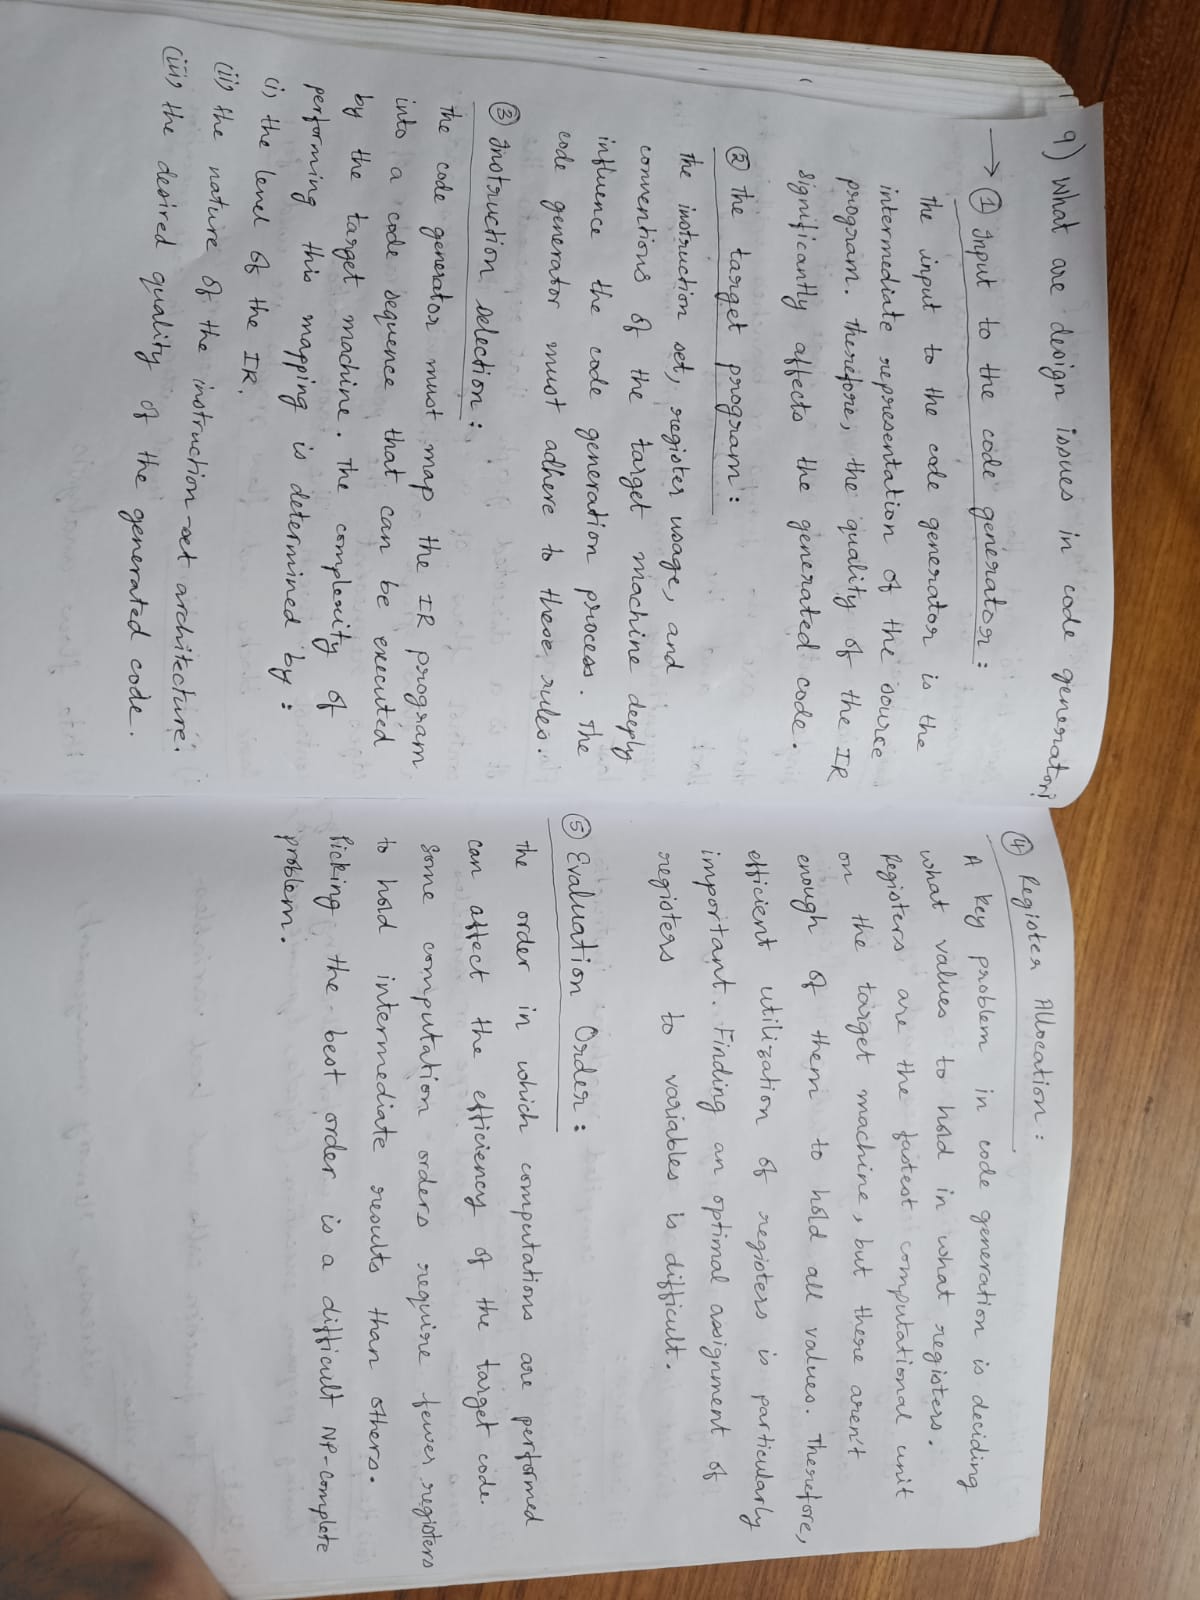 9) What are design issues in code generator?
→ ① Input to the code generator :
The input to the code generator is the
intermediate representation of the source
program. Therefore, the quality of the IR
significantly affects the generated code.
② The target program :
The instruction set, register usage, and
conventions of the target machine deeply
influence the code generation process. The
code generator must adhere to these rules.
③ Instruction selection :
The code generator must map the IR program
into a code sequence that can be executed
by the target machine. The complexity of
performing this mapping is determined by :
(i) the level of the IR.
(ii) the nature of the instruction-set architecture.
(iii) the desired quality of the generated code.
④ Register Allocation :
A key problem in code generation is deciding
what values to hold in what registers.
Registers are the fastest computational unit
on the target machine, but there aren't
enough of them to hold all values. Therefore,
efficient utilization of registers is particularly
important. Finding an optimal assignment of
registers to variables is difficult.
⑤ Evaluation Order :
The order in which computations are performed
can affect the efficiency of the target code.
Some computation orders require fewer registers
to hold intermediate results than others.
Picking the best order is a difficult NP-complete
problem.